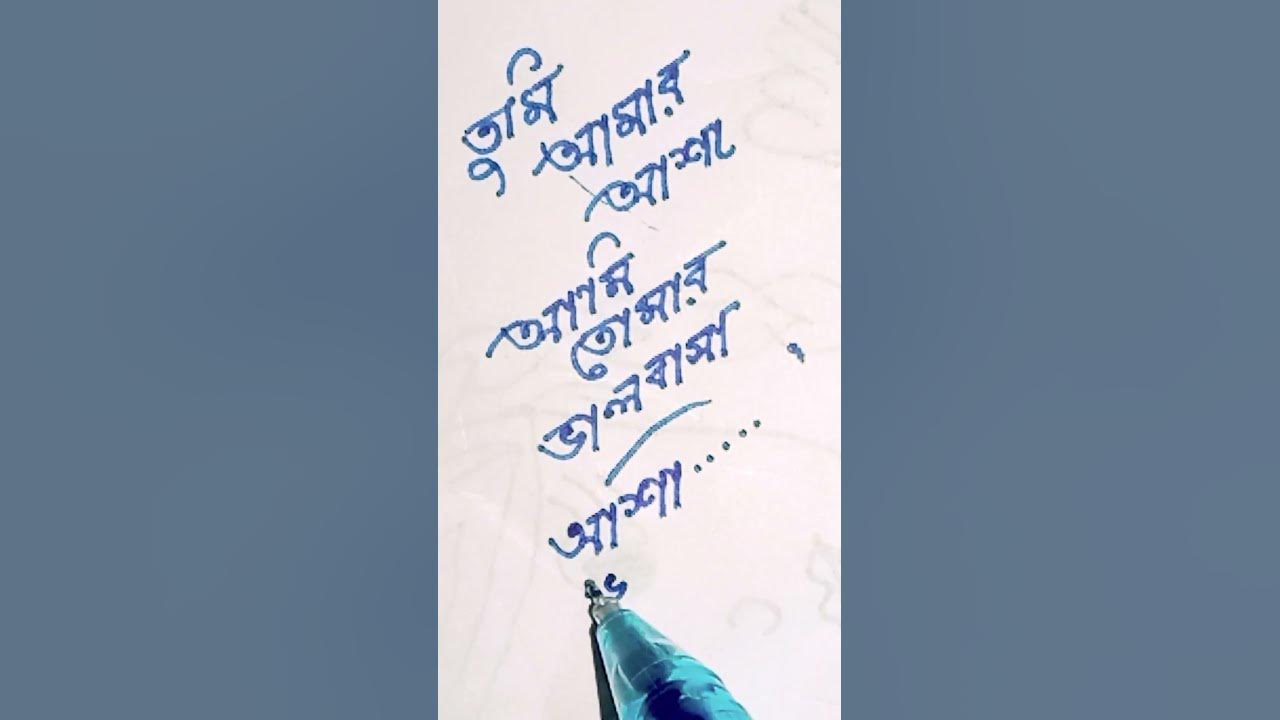 তুমি
আমার
আশা
আমি
তোমার
ভালবাসা
আশা.....
ভ